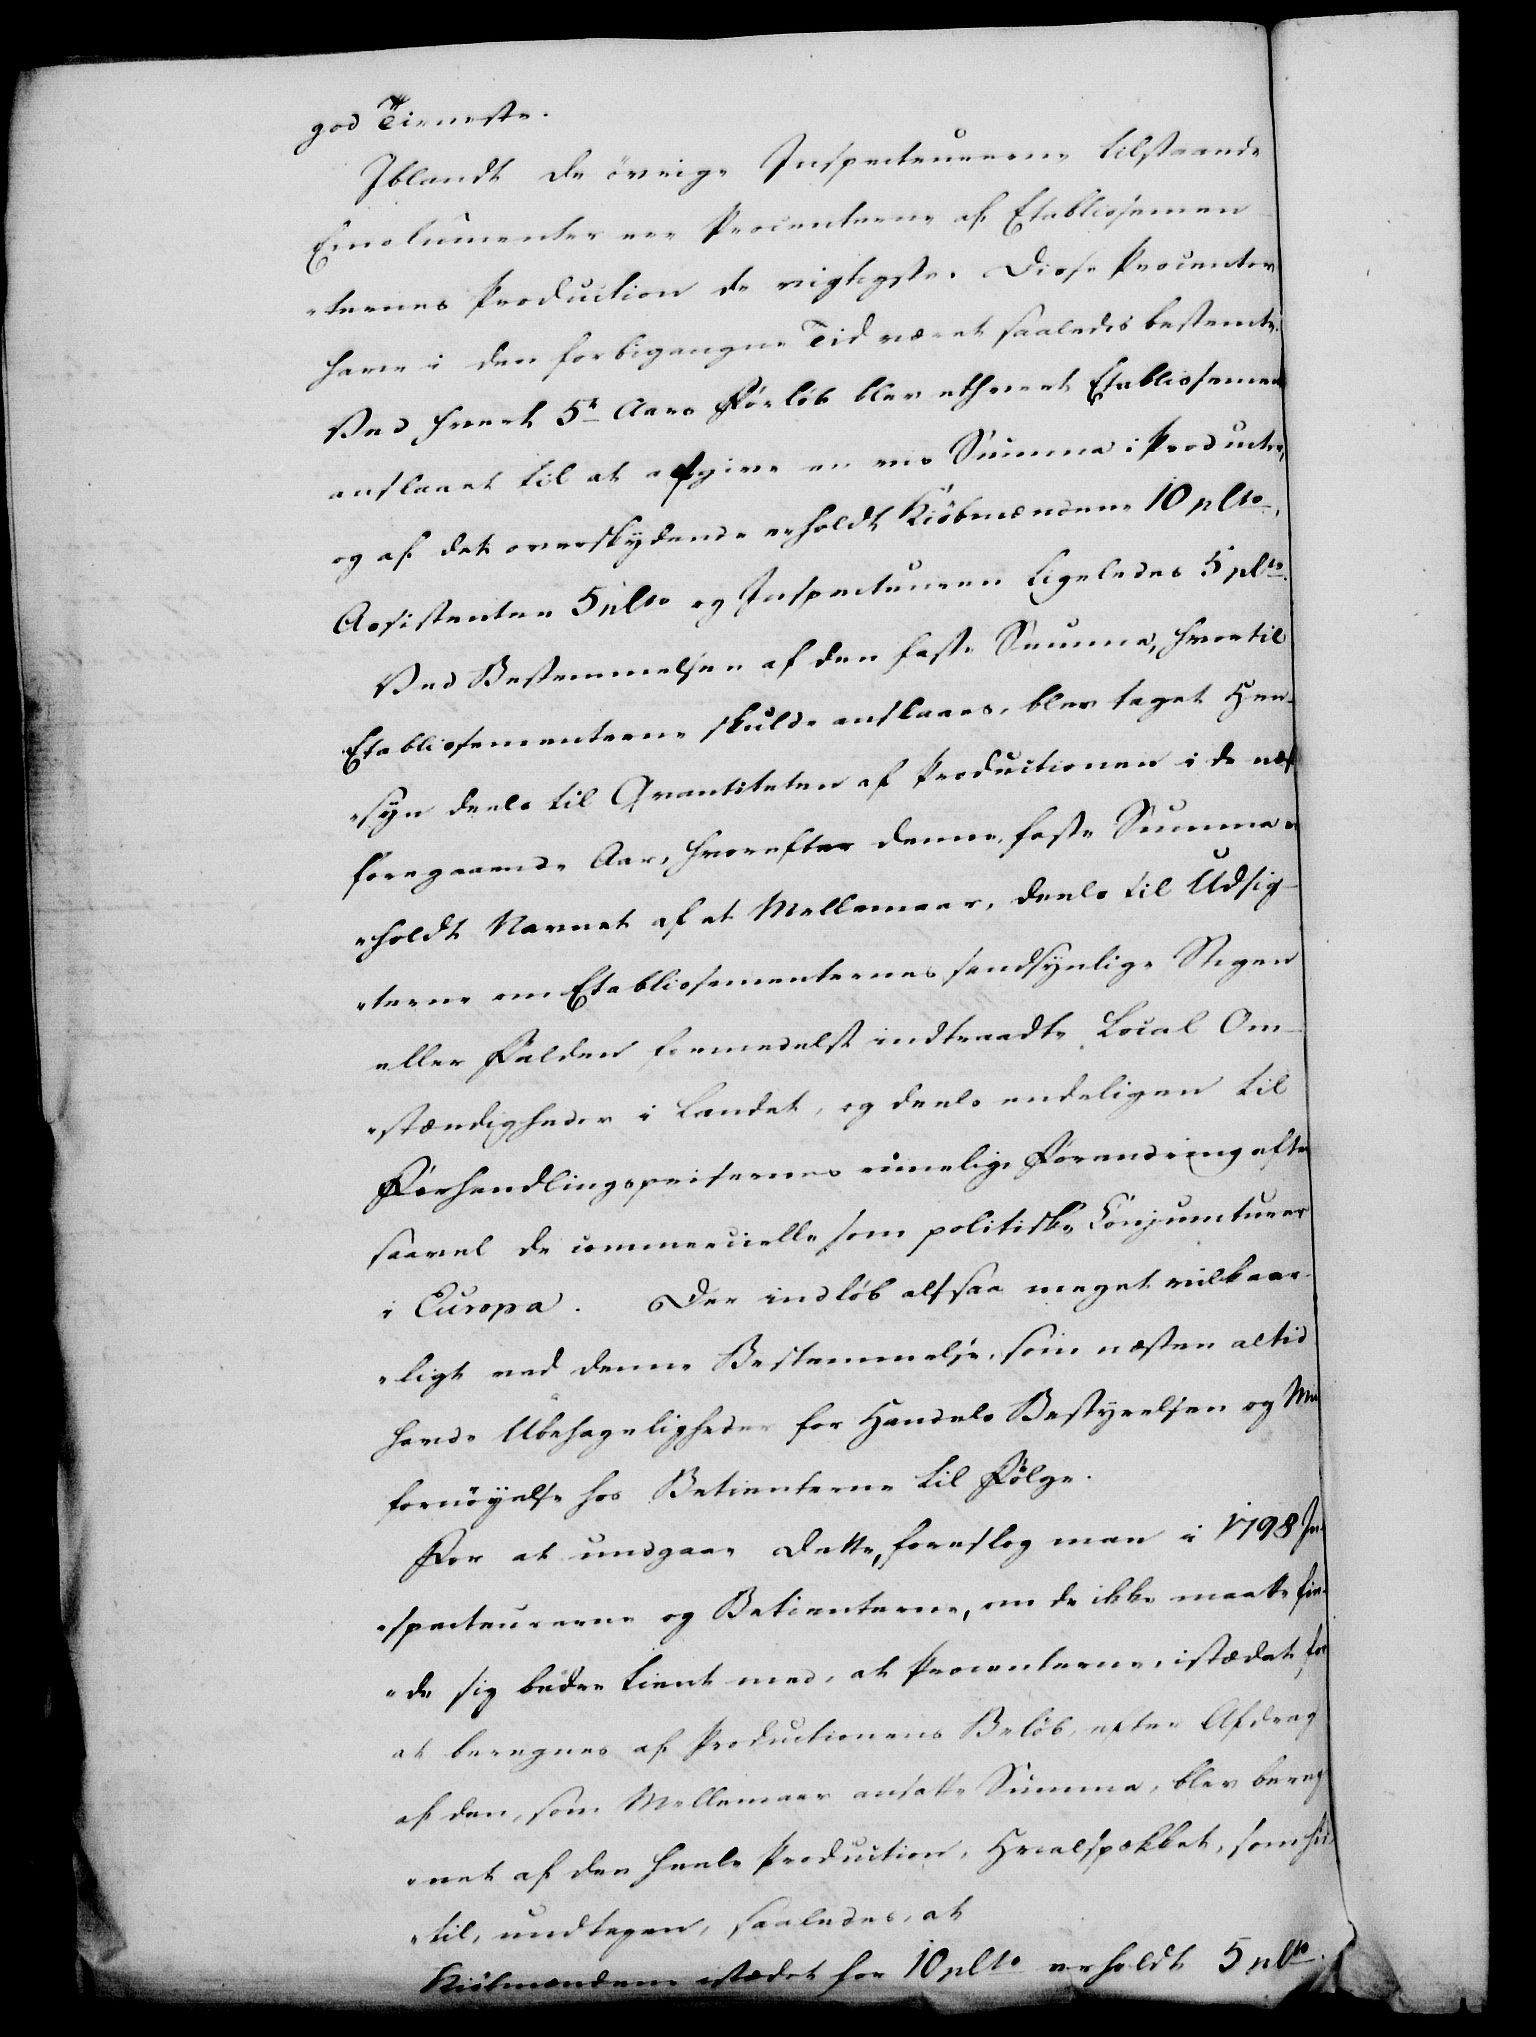 god Tieneste.
Iblandt de övrige Inspecteurerne tilstaaende
Emolumenter ere Procenterne af Etablissemen-
„ternes Production de vigtigste. Disse Procenter
have i den forbigangne Tid været saaledes bestemte.
Ved hvert 5te Aars Forløb blev ethvert Etablissement
anslaaet til at afgive en vis Summa i Producter,
og af det overskydende erholdt Kiöbmændene 10 pCto,
Assistenten 5 pCto og Inspecteuren ligeledes 5 pCto.
Ved Bestemmelsen af den faste Summa, hvortil
Etablissementerne skulde anslaaes, blev taget Hen-
„syn deels til Qvantiteten af Productionen i de næst
foregaaende Aar, hvorefter denne faste Summa er-
„holdt Navnet af et Mellemaar, deels til Udsig-
„terne om Etablissementernes sandsynlige Stigen
eller Falden formedelst indtraadte Local Om-
„stændigheder i Landet, og deels endeligen til
Forhandlingsprisernes rimelige Forandring efter
saavel de commercielle som politiske Conjuncturer
i Europa. Der indlöb altsaa meget vilkaar-
„ligt ved denne Bestemmelse, som næsten altid
havde Ubehageligheder for Handels Bestyrelsen og Mis
fornöyelse hos Betienterne til Fölge.
For at undgaae dette, foreslog man i 1798 In-
„specteurerne og Betienterne, om de ikke maatte fin-
„de sig bedre tient med, at Procenterne, istædet for
at beregnes af Productionens Belöb, efter Afdrag
af den, som Mellemaar ansatte Summa, blev bereg
„net af den heele Production, Hvalspækket, som hid
„til, undtagen, saaledes, at
Kiöbmændene istædet for 10 pCto erholdt 5 pCto.